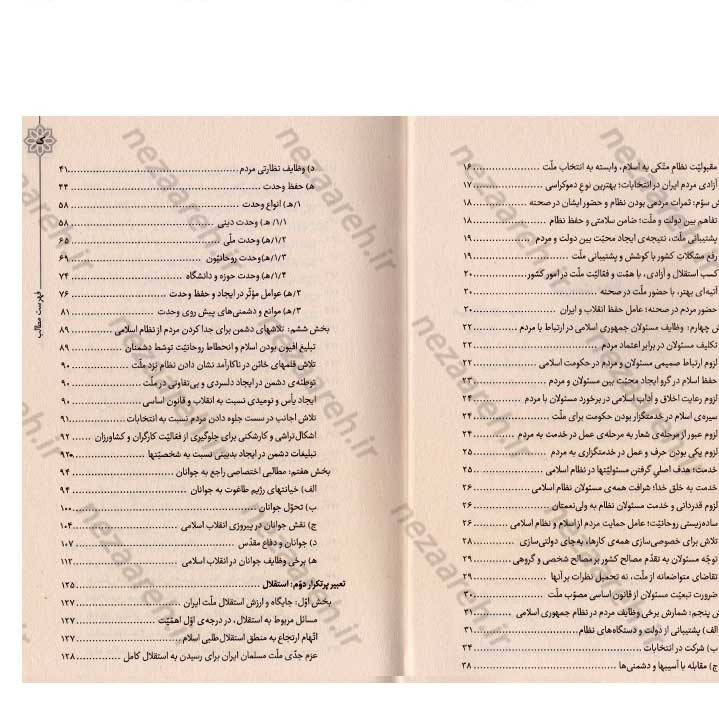 مقبولیّت نظام متّکی به اسلام، وابسته به انتخاب ملّت ۱۶
آزادی مردم ایران در انتخابات؛ بهترین نوع دموکراسی ۱۷
سوّم: ثمرات مردمی بودن نظام و حضور ایشان در صحنه ۱۸
تفاهم بین دولت و ملّت؛ ضامن سلامتی و حفظ نظام ۱۸
پشتیبانی ملّت، نتیجه‌ی ایجاد محبّت بین دولت و مردم ۱۹
رفع مشکلات کشور با کوشش و پشتیبانی ملّت ۱۹
کسب استقلال و آزادی، با همّت و فعّالیّت ملّت در امور کشور ۲۰
آتیه‌ای بهتر، با حضور ملّت در صحنه ۲۰
حضور مردم در صحنه؛ عامل حفظ انقلاب و ایران ۲۰
چهارم: وظایف مسئولان جمهوری اسلامی در ارتباط با مردم ۲۲
تکلیف مسئولان در برابر اعتماد مردم ۲۲
لزوم ارتباط صمیمی مسئولان و مردم در حکومت اسلامی ۲۲
حفظ اسلام در گرو ایجاد محبّت بین مسئولان و مردم ۲۳
لزوم رعایت اخلاق و آداب اسلامی در برخورد مسئولان با مردم ۲۴
سیره‌ی اسلام در خدمتگزار بودن حکومت برای ملّت ۲۴
لزوم عبور از مرحله‌ی شعار به مرحله‌ی عمل در خدمت به مردم ۲۴
لزوم یکی بودن حرف و عمل در خدمتگزاری به مردم ۲۵
خدمت؛ هدف اصلی گرفتن مسئولیّتها در نظام اسلامی ۲۵
خدمت به خلق خدا؛ شرافت همه‌ی مسئولان نظام اسلامی ۲۶
لزوم قدردانی و خدمت مسئولان نظام به ولی‌نعمتان ۲۶
ساده‌زیستی روحانیّت؛ عامل حمایت مردم از اسلام و نظام اسلامی ۲۶
تلاش برای خصوصی‌سازی همه‌ی کارها، به‌جای دولتی‌سازی ۲۸
توجّه مسئولان به تقدّم مصالح کشور بر مصالح شخصی و گروهی ۲۹
تقاضای متواضعانه از ملّت، نه تحمیل نظرات بر آنها ۲۹
ضرورت تبعیّت مسئولان از قانون اساسی مصوّب ملّت ۳۰
پنجم: شمارش برخی وظایف مردم در نظام جمهوری اسلامی ۳۱
الف) پشتیبانی از دولت و دستگاه‌های نظام ۳۱
ب) شرکت در انتخابات ۳۴
ج) مقابله با آسیبها و دشمنی‌ها ۳۸
ک
فهرست مطالب
د) وظایف نظارتی مردم ۴۱
ه‍) حفظ وحدت ۴۴
ه‍/۱) انواع وحدت ۵۸
ه‍/۱/۱) وحدت دینی ۵۸
ه‍/۱/۲) وحدت ملّی ۶۵
ه‍/۱/۳) وحدت روحانیّون ۶۹
ه‍/۱/۴) وحدت حوزه و دانشگاه ۷۴
ه‍/۲) عوامل مؤثّر در ایجاد و حفظ وحدت ۷۶
ه‍/۳) موانع و دشمنی‌های پیش روی وحدت ۸۱
بخش ششم: تلاشهای دشمن برای جدا کردن مردم از نظام اسلامی ۸۹
تبلیغ افیون بودن اسلام و انحطاط روحانیّت توسّط دشمنان ۸۹
تلاش قلمهای خائن در ناکارآمد نشان دادن نظام نزد ملّت ۹۰
توطئه‌ی دشمن در ایجاد دلسردی و بی‌تفاوتی در ملّت ۹۰
ایجاد یأس و نومیدی نسبت به انقلاب و قانون اساسی ۹۰
تلاش اجانب در سست جلوه دادن مردم نسبت به انتخابات ۹۱
اشکال‌تراشی و کارشکنی برای جلوگیری از فعّالیّت کارگران و کشاورزان ۹۲
تبلیغات دشمن در ایجاد بدبینی نسبت به شخصیّتها ۹۲
بخش هفتم: مطالبی اختصاصی راجع به جوانان ۹۴
الف) خیانتهای رژیم طاغوت به جوانان ۹۴
ب) تحوّل جوانان ۱۰۰
ج) نقش جوانان در پیروزی انقلاب اسلامی ۱۰۴
د) جوانان و دفاع مقدّس ۱۰۷
ه‍) برخی وظایف جوانان در انقلاب اسلامی ۱۱۲
تعبیر پرتکرار دوّم: استقلال ۱۲۵
بخش اوّل: جایگاه و ارزش استقلال ملّت ایران ۱۲۷
مسائل مربوط به استقلال، در درجه‌ی اوّل اهمّیّت ۱۲۷
اتّهام ارتجاع به منطق استقلال‌طلبی اسلام ۱۲۷
عزم جدّی ملّت مسلمان ایران برای رسیدن به استقلال کامل ۱۲۸
nezaareh.ir